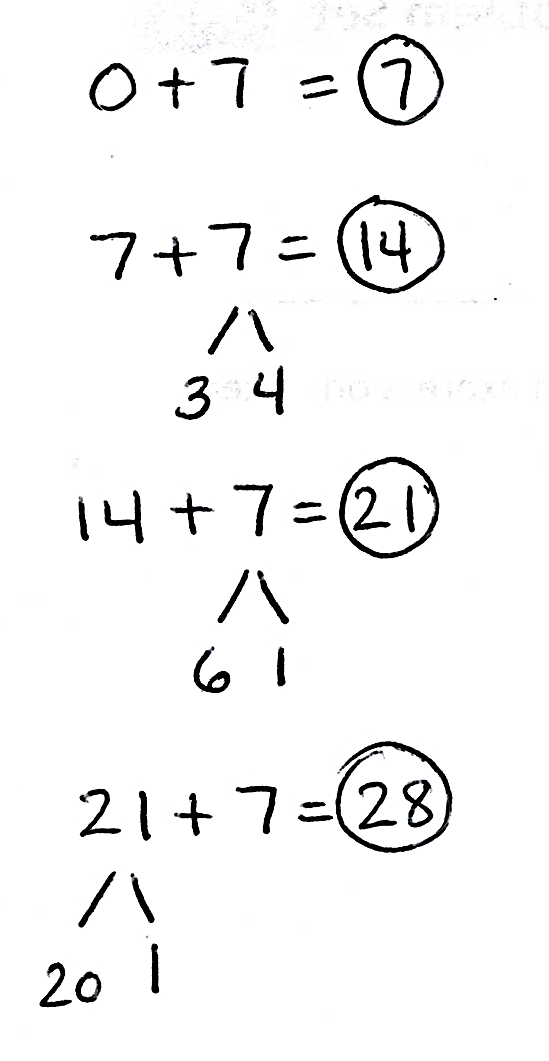 0 + 7 = 7
7 + 7 = 14
3 4
14 + 7 = 21
6 1
21 + 7 = 28
20 1